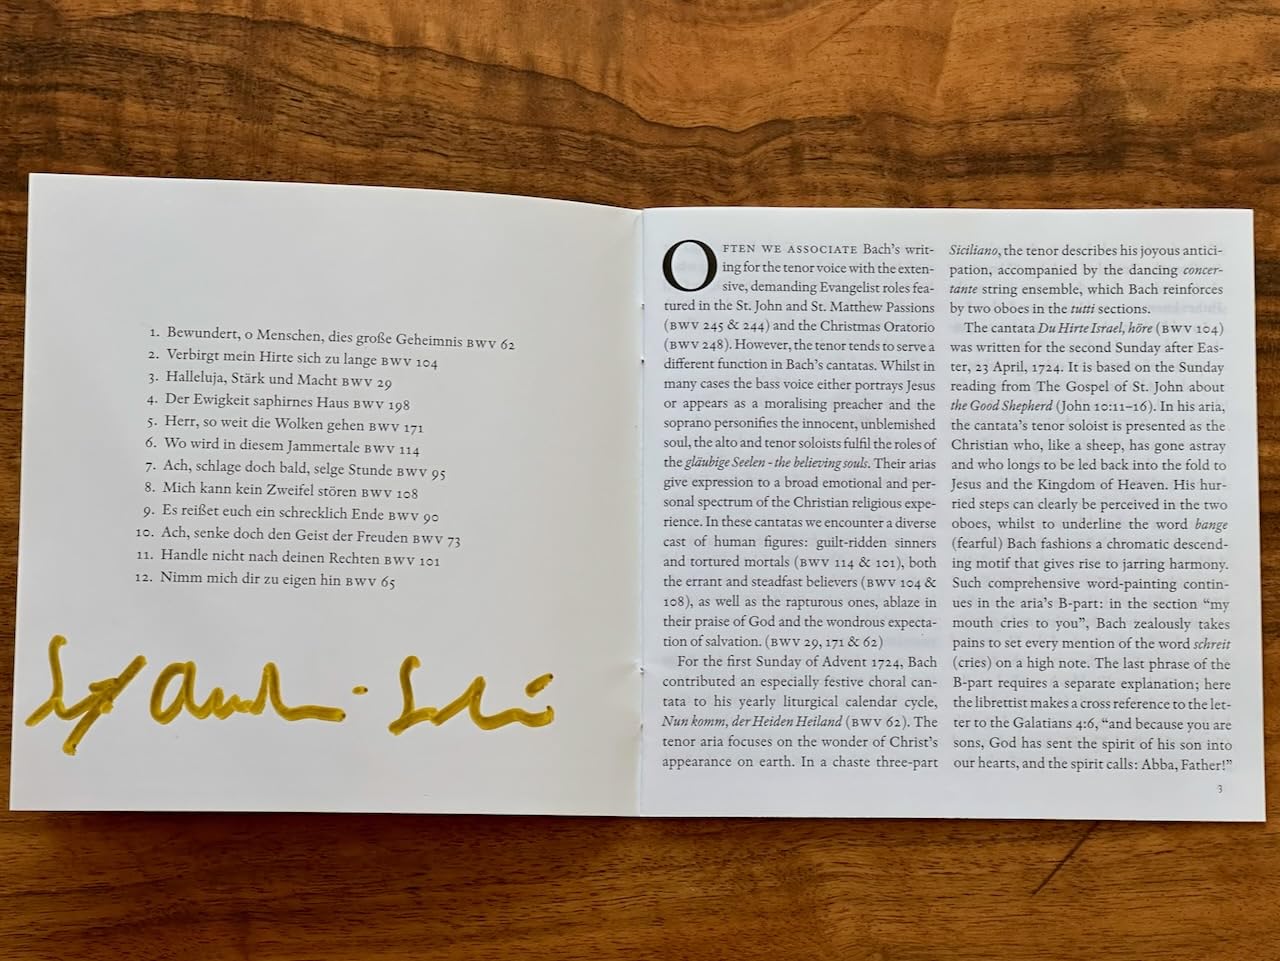 1. Bewundert, o Menschen, dies große Geheimnis BWV 62
2. Verbirgt mein Hirte sich zu lange BWV 104
3. Halleluja, Stärk und Macht BWV 29
4. Der Ewigkeit saphirnes Haus BWV 198
5. Herr, so weit die Wolken gehen BWV 171
6. Wo wird in diesem Jammertale BWV 114
7. Ach, schlage doch bald, selge Stunde BWV 95
8. Mich kann kein Zweifel stören BWV 108
9. Es reißet euch ein schrecklich Ende BWV 90
10. Ach, senke doch den Geist der Freuden BWV 73
11. Handle nicht nach deinen Rechten BWV 101
12. Nimm mich dir zu eigen hin BWV 65
OFTEN WE ASSOCIATE Bach's writ-
ing for the tenor voice with the exten-
sive, demanding Evangelist roles fea-
tured in the St. John and St. Matthew Passions
(BWV 245 & 244) and the Christmas Oratorio
(BWV 248). However, the tenor tends to serve a
different function in Bach's cantatas. Whilst in
many cases the bass voice either portrays Jesus
or appears as a moralising preacher and the
soprano personifies the innocent, unblemished
soul, the alto and tenor soloists fulfil the roles of
the gläubige Seelen - the believing souls. Their arias
give expression to a broad emotional and per-
sonal spectrum of the Christian religious expe-
rience. In these cantatas we encounter a diverse
cast of human figures: guilt-ridden sinners
and tortured mortals (BWV 114 & 101), both
the errant and steadfast believers (BWV 104 &
108), as well as the rapturous ones, ablaze in
their praise of God and the wondrous expecta-
tion of salvation. (BWV 29, 171 & 62)
For the first Sunday of Advent 1724, Bach
contributed an especially festive choral can-
tata to his yearly liturgical calendar cycle,
Nun komm, der Heiden Heiland (BWV 62). The
tenor aria focuses on the wonder of Christ's
appearance on earth. In a chaste three-part
Siciliano, the tenor describes his joyous antici-
pation, accompanied by the dancing concer-
tante string ensemble, which Bach reinforces
by two oboes in the tutti sections.
The cantata Du Hirte Israel, höre (BWV 104)
was written for the second Sunday after Eas-
ter, 23 April, 1724. It is based on the Sunday
reading from The Gospel of St. John about
the Good Shepherd (John 10:11–16). In his aria,
the cantata's tenor soloist is presented as the
Christian who, like a sheep, has gone astray
and who longs to be led back into the fold to
Jesus and the Kingdom of Heaven. His hur-
ried steps can clearly be perceived in the two
oboes, whilst to underline the word bange
(fearful) Bach fashions a chromatic descend-
ing motif that gives rise to jarring harmony.
Such comprehensive word-painting contin-
ues in the aria's B-part: in the section “my
mouth cries to you”, Bach zealously takes
pains to set every mention of the word schreit
(cries) on a high note. The last phrase of the
B-part requires a separate explanation; here
the librettist makes a cross reference to the let-
ter to the Galatians 4:6, “and because you are
sons, God has sent the spirit of his son into
our hearts, and the spirit calls: Abba, Father!”
3